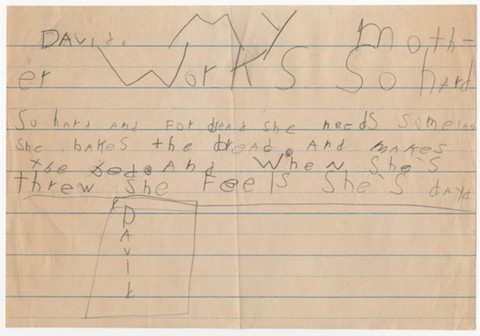 DAViD. MY Moth-
er Works So hard
So hard and for bread she needs some
She bakes the bread. And makes
the bed. And When She's
threw She Feels She's dayd
DAViD